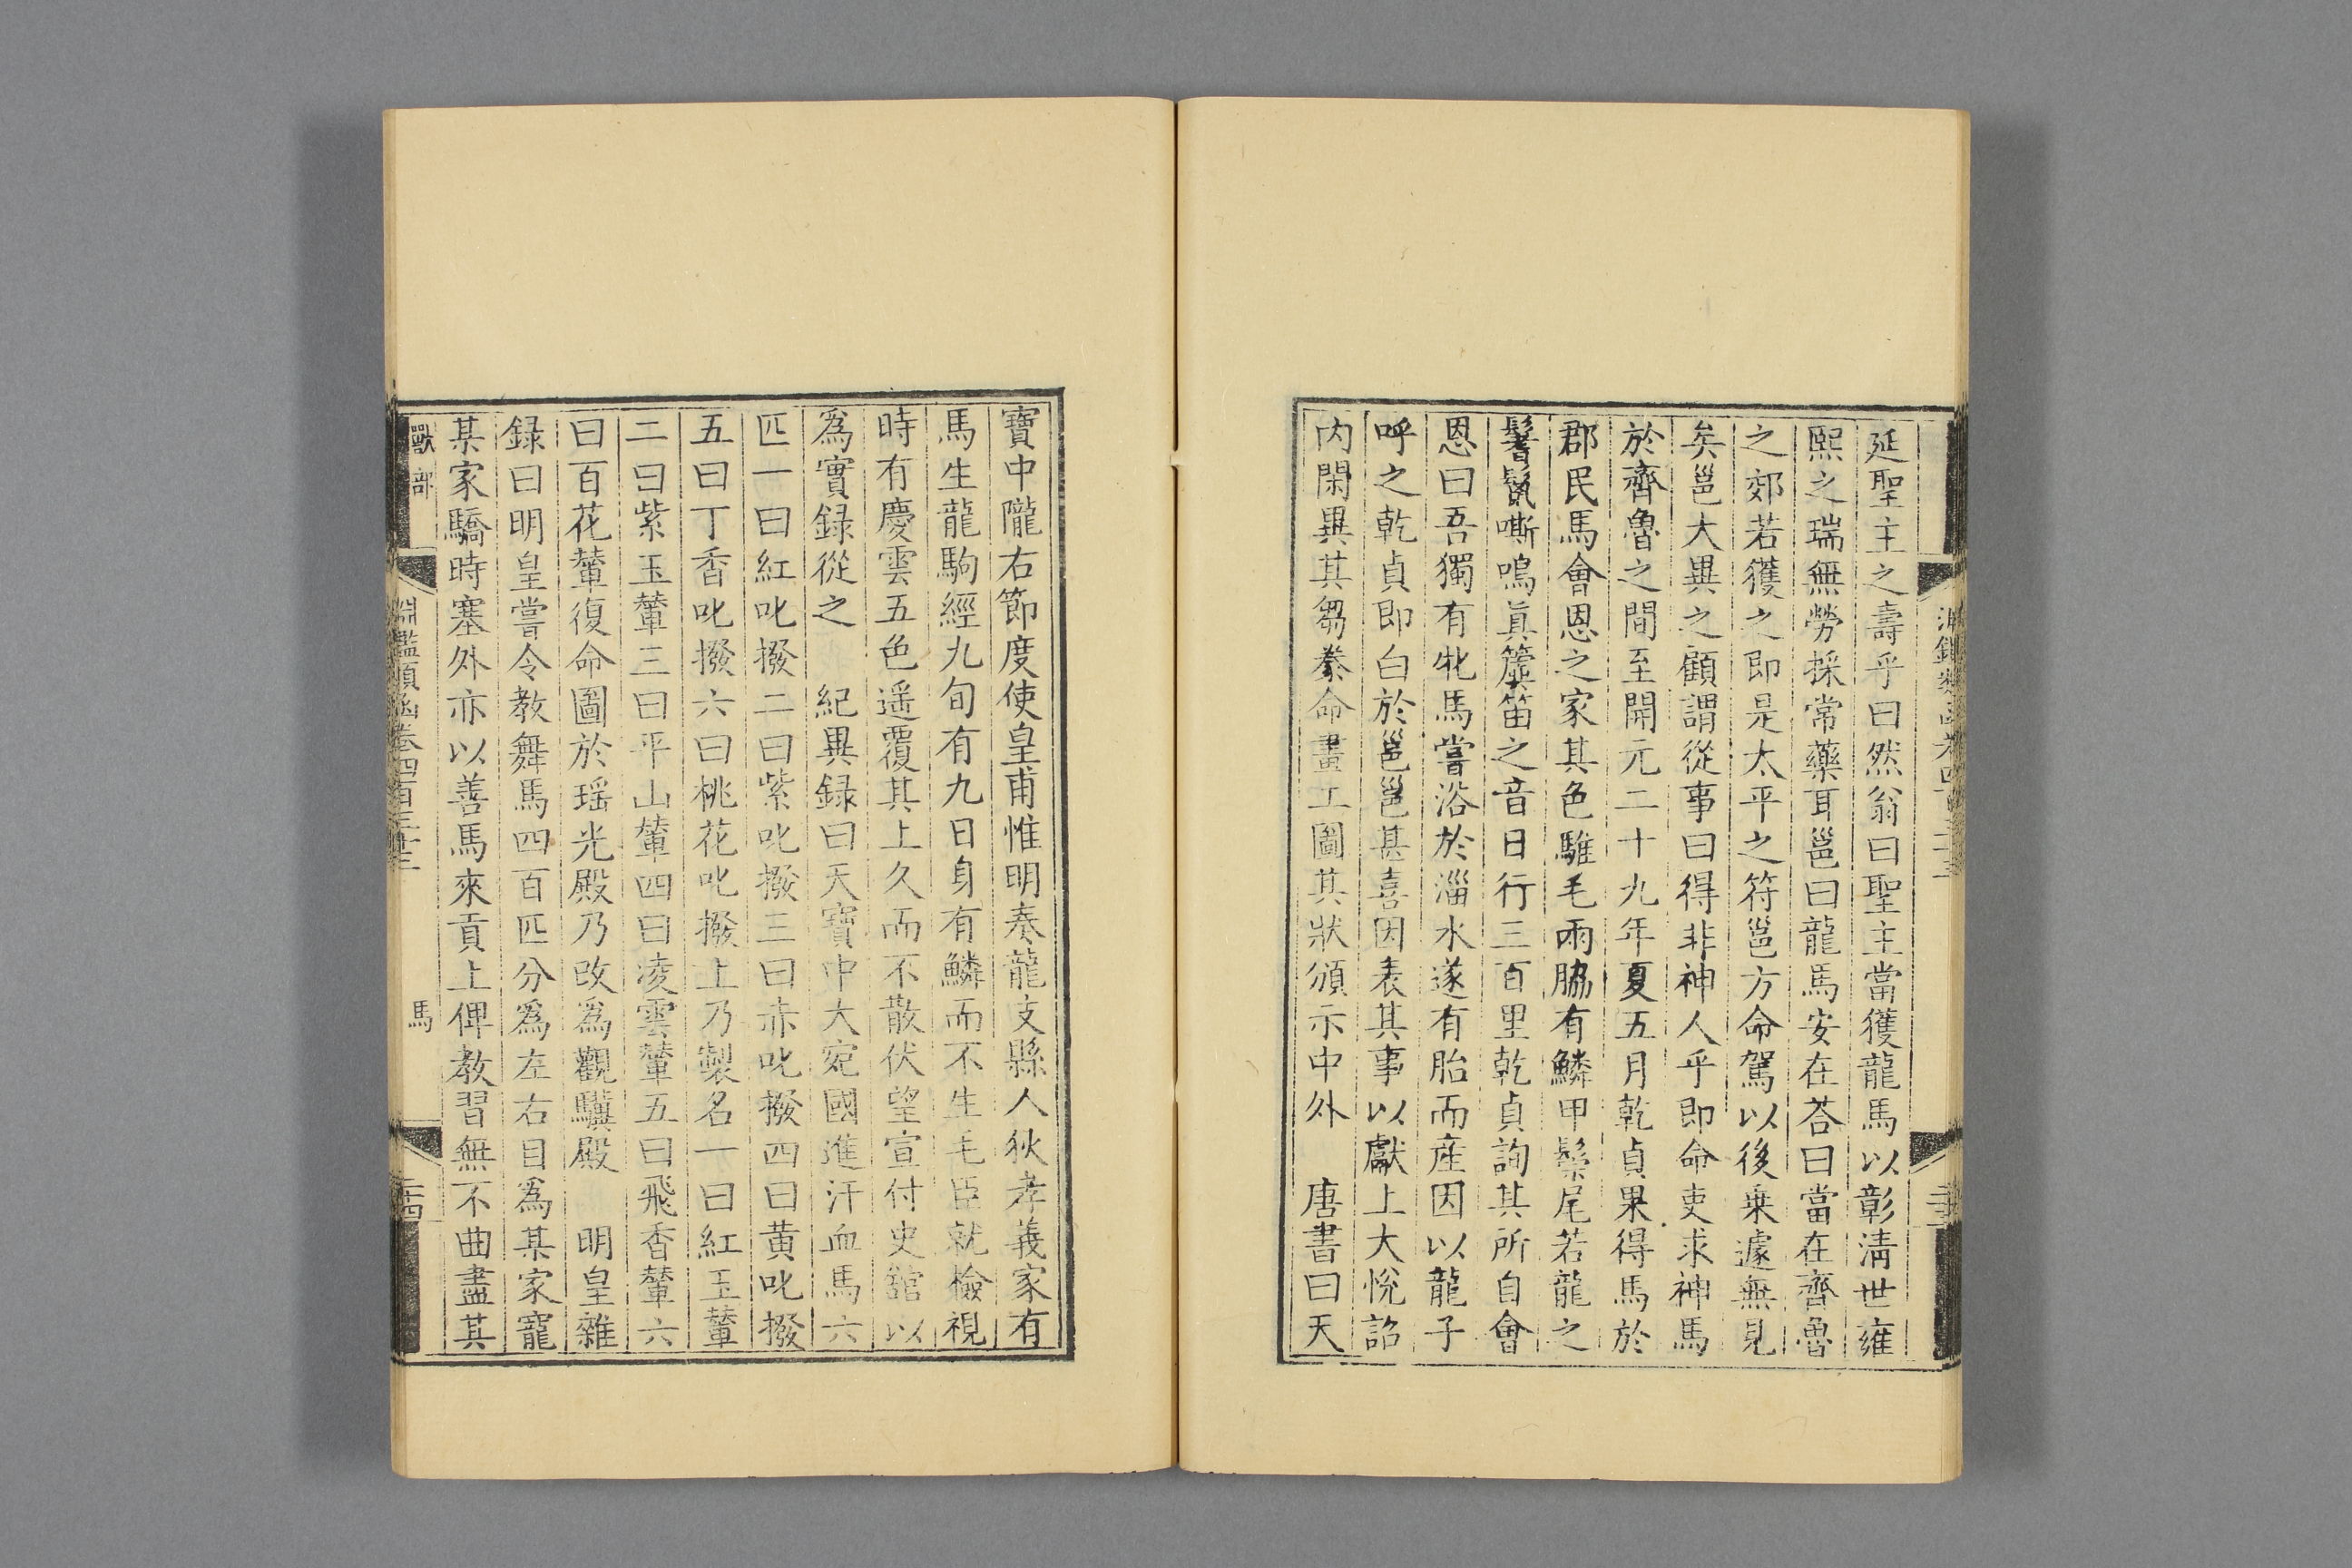 延聖主之壽乎曰然翁曰聖主當獲龍馬以彰清世雍
熙之瑞無勞採常藥耳邕曰龍馬安在荅曰當在齊魯
之郊若獲之即是太平之符邕方命駕以後乗遽無見
矣邕大異之顧謂從事曰得非神人乎即命吏求神馬
於齊魯之間至開元二十九年夏五月乾貞果得馬於
郡民馬會恩之家其色騅毛兩脇有鱗甲鬃尾若龍之
鬐鬛嘶鳴真簴笛之音日行三百里乾貞詢其所自會
恩曰吾獨有牝馬嘗浴於淄水遂有胎而産因以龍子
呼之乾貞即白於邕邕甚喜因表其事以獻上大悅詔
内閑異其芻豢命畫工圖其狀頒示中外　唐書曰天
寶中隴右節度使皇甫惟明奏龍支縣人狄孝義家有
馬生龍駒經九旬有九日身有鱗而不生毛臣就檢視
時有慶雲五色遥覆其上久而不散伏望宣付史舘以
為實録從之　紀異録曰天寶中大宛國進汗血馬六
匹一曰紅叱撥二曰紫叱撥三曰赤叱撥四曰黄叱撥
五曰丁香叱撥六曰桃花叱撥上乃製名一曰紅玉輦
二曰紫玉輦三曰平山輦四曰凌雲輦五曰飛香輦六
曰百花輦復命圖於瑶光殿乃改為觀驥殿　明皇雜
録曰明皇嘗令教舞馬四百匹分為左右目為某家寵
某家驕時塞外亦以善馬來貢上俾教習無不曲盡其
獸部　淵鑑類函卷四百三十三　馬　二十四